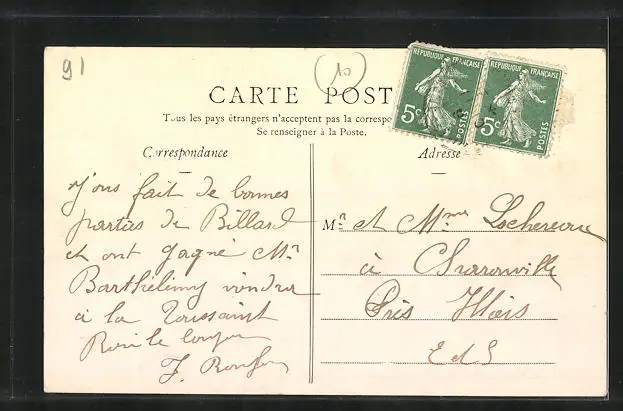 91
10
CARTE POST
Tous les pays étrangers n'acceptent pas la correspo
Se renseigner à la Poste.
RÉPUBLIQUE FRANÇAISE
5c
POSTES
RÉPUBLIQUE FRANÇAISE
5c
POSTES
Correspondance
Adresse
J'ons fait de bonnes
parties de Billard
et ont gagné Mr
Barthélémy viendra
à la Toussaint
J.
Mr et Mme
à
Près
E et L